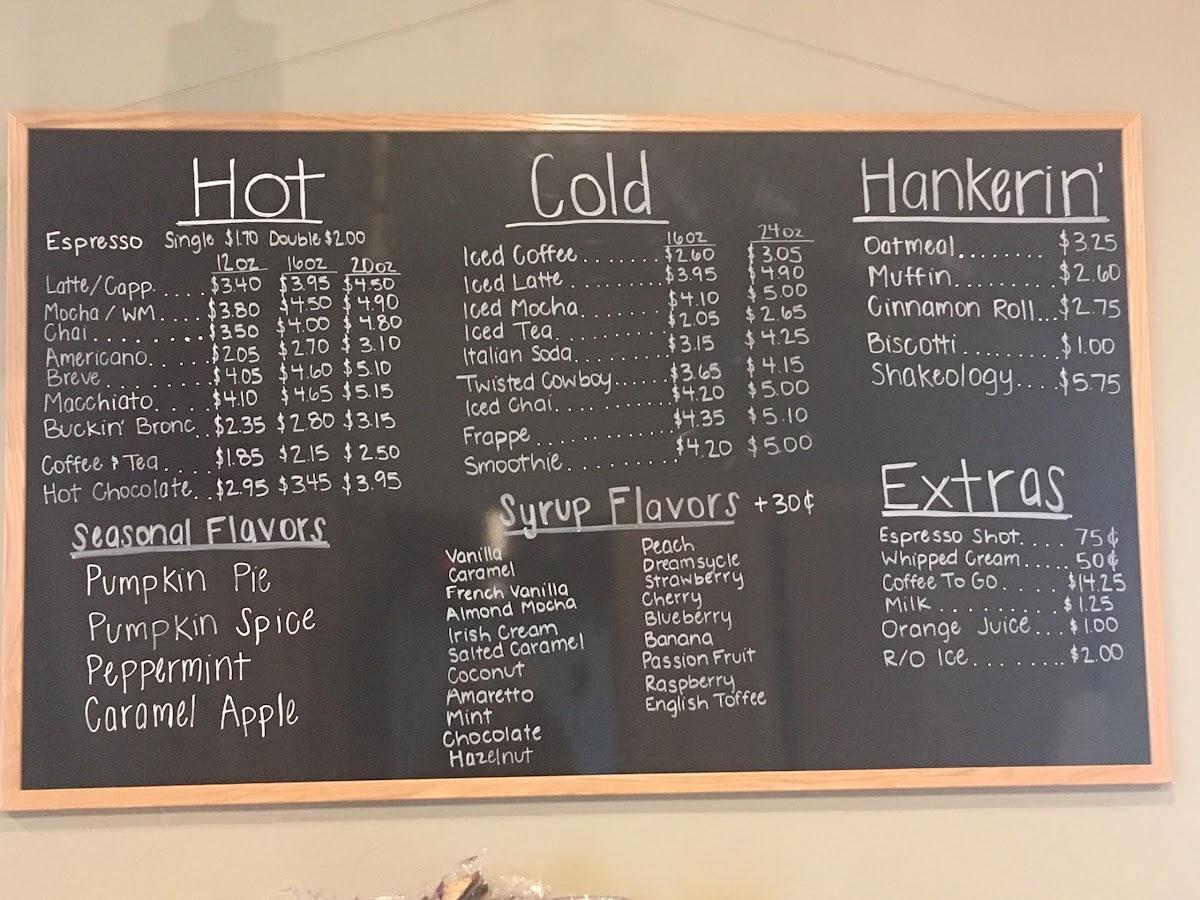 Hot
Espresso Single $1.70 Double $2.00
12oz 16oz 20oz
Latte/Capp..... $3.40 $3.95 $4.50
Mocha/WM.... $3.80 $4.50 $4.90
Chai........... $3.50 $4.00 $4.80
Americano...... $2.05 $2.70 $3.10
Breve.......... $4.05 $4.60 $5.10
Macchiato..... $4.10 $4.65 $5.15
Buckin' Bronc.. $2.35 $2.80 $3.15
Coffee & Tea.... $1.85 $2.15 $2.50
Hot Chocolate.. $2.95 $3.45 $3.95
Seasonal Flavors
Pumpkin Pie
Pumpkin Spice
Peppermint
Caramel Apple
Cold
16oz 24oz
Iced Coffee....... $2.60 $3.05
Iced Latte......... $3.95 $4.90
Iced Mocha........ $4.10 $5.00
Iced Tea........... $2.05 $2.65
Italian Soda........ $3.15 $4.25
Twisted Cowboy...... $3.65 $4.15
Iced Chai........... $4.20 $5.00
Frappe............. $4.35 $5.10
Smoothie.......... $4.20 $5.00
Syrup Flavors +30¢
Vanilla
Caramel
French Vanilla
Almond Mocha
Irish Cream
Salted Caramel
Coconut
Amaretto
Mint
Chocolate
Hazelnut
Peach
Dreamsycle
Strawberry
Cherry
Blueberry
Banana
Passion Fruit
Raspberry
English Toffee
Hankerin'
Oatmeal........ $3.25
Muffin......... $2.60
Cinnamon Roll... $2.75
Biscotti......... $1.00
Shakeology.... $5.75
Extras
Espresso Shot.... 75¢
Whipped Cream..... 50¢
Coffee To Go..... $14.25
Milk........... $1.25
Orange Juice... $1.00
R/O Ice........ $2.00